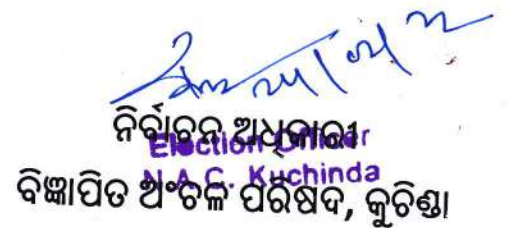 ନିର୍ବାଚନ ଅଧିକାରୀ
Election Officer
N.A.C. Kuchinda
ବିଜ୍ଞାପିତ ଅଂଚଳ ପରିଷଦ, କୁଚିଣ୍ଡା